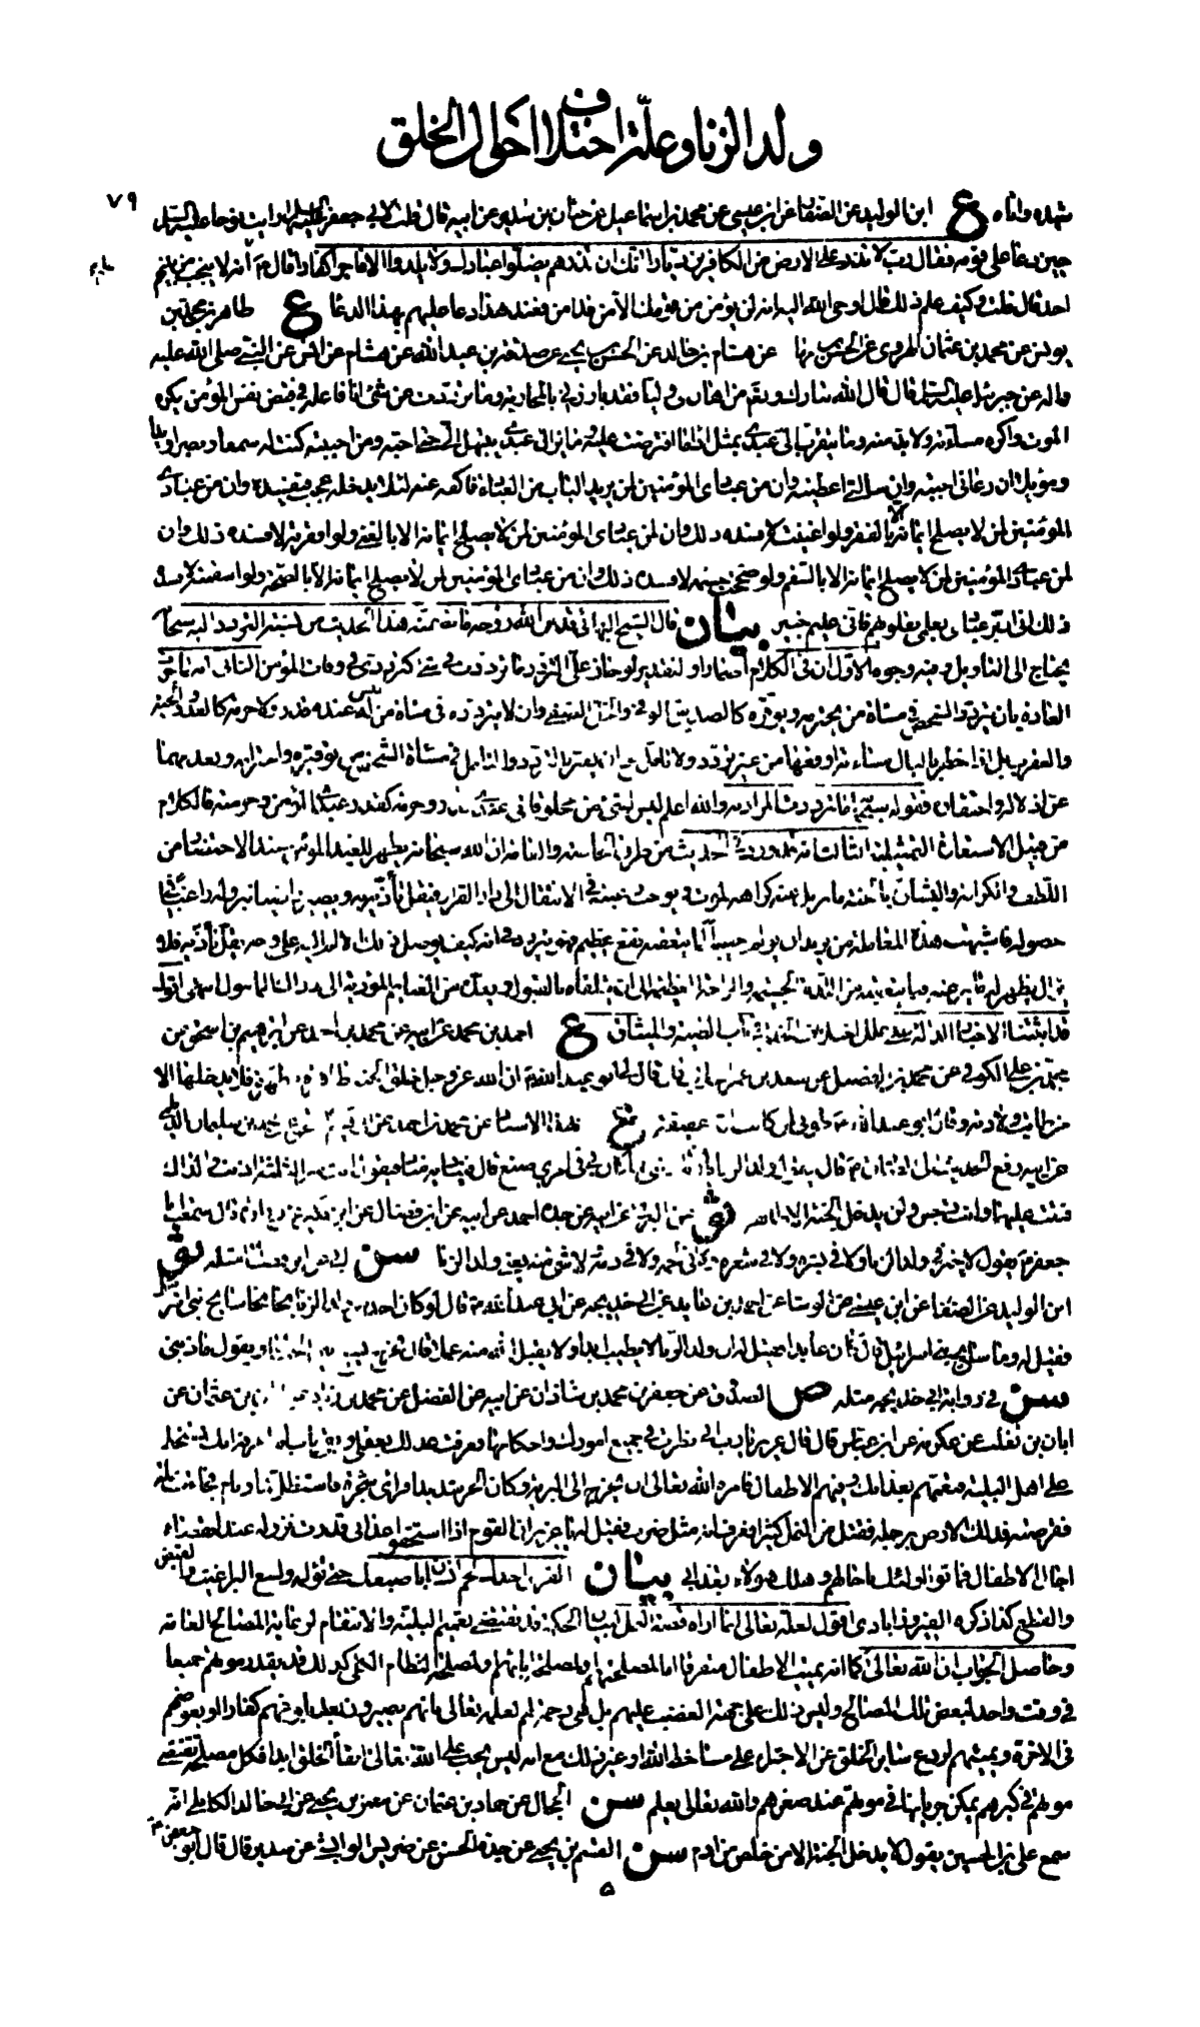 ولد الزنا وعلة اختلاف احوال الخلق
٧٩
شهده واناه ع ابن الوليد عن الصفار عن ابن عيسى عن محمد بن اسماعيل عن حنان بن سدير عن ابيه قال قلت لابي جعفر عليه السلم ارايت نوحا عليه السلم
حين دعا على قومه فقال رب لا تذر على الارض من الكافرين ديارا انك ان تذرهم يضلوا عبادك ولا يلدوا الا فاجرا كفارا قال ع انه لا ينجب من بينهم
احد قال قلت وكيف علم ذلك قال اوحى الله اليه انه لن يؤمن من قومك الا من قد امن فعند هذا دعا عليهم بهذا الدعا ع طاهر بن محمد بن
يونس عن محمد بن عثمان الهروي عن الحسن بن عن هشام بن خالد عن الحسن بن يحيى عن صدقة بن عبد الله عن هشام عن انس عن النبي صلى الله عليه
واله عن جبرئيل عليه السلم قال قال الله تبارك وتعالى من اهان لي وليا فقد بارزني بالمحاربة وما ترددت عن شئ انا فاعله في قبض نفس المؤمن يكره
الموت واكره مساءته ولا بد منه وما يتقرب الي عبدي بمثل اداء ما افترضت عليه وما يزال عبدي يبتهل الي حتى احبه ومن احببته كنت له سمعا وبصرا ويدا
وموئلا ان دعاني اجبته وان سالني اعطيته وان من عبادي المؤمنين لمن يريد الباب من العبادة فاكفه عنه لئلا يدخله عجب فيفسده وان من عبادي
المؤمنين لمن لا يصلح ايمانه الا بالفقر ولو اغنيته لافسده ذلك وان من عبادي المؤمنين لمن لا يصلح ايمانه الا بالغنى ولو افقرته لافسده ذلك وان
من عبادي المؤمنين لمن لا يصلح ايمانه الا بالسقم ولو صححت جسمه لافسده ذلك وان من عبادي المؤمنين لمن لا يصلح ايمانه الا بالصحة ولو اسقمته لافسده
ذلك اني ادبر عبادي بعلمي بقلوبهم فاني عليم خبير بيان قال الشيخ البهائي قدس الله روحه ما تضمنه هذا الحديث من نسبة التردد اليه سبحانه
يحتاج الى التاويل وفيه وجوه الاول ان في الكلام اضمارا والتقدير لو جاز علي التردد ما ترددت في شئ كترددي في وفات المؤمن الثاني انه لما جرت
العادة بان يتردد الشخص في مساءة من يحترمه ويوقره كالصديق الوفي والخل الصفي وان لا يتردد في مساءة من ليس له عنده قدر ولا حرمة كالعدو والحية
والعقرب بل اذا خطر بالبال مساءته اوقعها من غير تردد ولا تامل صح ان يعبر بالتردد والتامل في مساءة الشخص عن توقيره واحترامه وبعدمهما
عن اذلاله واحتقاره فقوله سبحانه ما ترددت المراد به والله اعلم ليس لشئ من مخلوقاتي عندي قدر وحرمة كقدر عبدي المؤمن وحرمته فالكلام
من قبيل الاستعارة التمثيلية الثالث انه قد ورد في الحديث من طرق الخاصة والعامة ان الله سبحانه يظهر للعبد المؤمن عند الاحتضار من
اللطف والكرامة والبشارة بالجنة ما يزيل عنه كراهة الموت ويوجب رغبته في الانتقال الى دار القرار فيقل تاذيه به ويصير راضيا بنزوله راغبا في
حصوله فاشبهت هذه المعاملة من يريد ان يولم حبيبه الما يتعقبه نفع عظيم فهو يتردد في انه كيف يوصل ذلك الالم اليه على وجه يقل تاذيه فلا
يزال يظهر له ما يرغبه فيما يتعقبه من اللذة الجسيمة والراحة العظيمة الى ان يتلقاه بالقبول ويعده من الغنايم المؤدية الى ادراك المامول انتهى اقول
قد اثبتنا الاخبار الدالة على علل اختلاف الخلق في باب الطينة والميثاق ع احمد بن محمد عن ابيه عن محمد بن احمد عن ابرهيم بن اسحق عن
محمد بن علي الكوفي عن محمد بن الفضيل عن سعد بن عمر الجلاب قال قال لي ابو عبد الله ع ان الله عز وجل خلق الجنة طاهرة مطهرة فلا يدخلها الا
من طابت ولادته وقال ابو عبد الله ع طوبى لمن كانت امه عفيفة ع بهذا الاسناد عن محمد بن احمد عن محمد بن سليمان الديلمي
عن ابيه رفع الحديث الى الصادق ع قال يقول ولد الزنا يا رب ما ذنبي فما كان لي في امري صنع قال فيناديه مناد فيقول انت شر الثلثة اذنب والداك
فنبت عليهما وانت رجس ولن يدخل الجنة الا طاهر
جعفر ع يقول لا خير في ولد الزنا ولا في بشره ولا في شعره ولا في لحمه ولا في دمه ولا في شئ منه يعني ولد الزنا سن ابي عن ابن فضال مثله ثو
ابن الوليد عن الصفار عن ابن عيسى عن الوشا عن احمد بن عايذ عن ابي خديجة عن ابي عبد الله ع قال لو كان احد من ولد الزنا نجا نجا سايح بني اسرائيل
فقيل له وما سايح بني اسرائيل قال كان عابدا فقيل له ان ولد الزنا لا يطيب ابدا ولا يقبل الله منه عملا قال فخرج يسيح بين الجبال ويقول ما ذنبي
سن في رواية ابي خديجة مثله ص الصدوق عن جعفر بن محمد بن شاذان عن ابيه عن الفضل عن محمد بن زياد عن ابان بن عثمان عن
ابان بن تغلب عن عكرمة عن ابن عباس قال قال عزير يا رب اني نظرت في جميع امورك واحكامها فعرفت عدلك بعقلي وبقي باب لم اعرفه انك تسخط
على اهل البلية فتعمهم بعذابك وفيهم الاطفال فامره الله تعالى ان يخرج الى البرية وكان الحر شديدا فراى شجرة فاستظل بها ونام فجاءت نملة
فقرصته فدلك الارض برجله فقتل من النمل كثيرا فعرف انه مثل ضرب فقيل له يا عزير ان القوم اذا استحقوا عذابي قدرت نزوله عند انقضاء
اجال الاطفال فماتوا اولئك باجالهم وهلك هؤلاء بعذابي بيان القرص اخذك لحم انسان باصبعك حتى تؤلمه ولسع البراغيث والقبض
والقطع كذا ذكره الفيروزابادي اقول لعله تعالى انما اراه قصة النمل لبيان ان الحكمة قد تقتضي تعميم البلية والانتقام لرعاية المصالح العامة
وحاصل الجواب ان الله تعالى كما انه يميت الاطفال متفرقا اما لمصلحتهم او لمصلحة ابائهم او لمصلحة النظام الكلي كذلك قد يقدر موتهم جميعا
في وقت واحد لبعض تلك المصالح وليس ذلك على جهة الغضب عليهم بل هي رحمة لهم لعلمه تعالى بانهم يصيرون بعد بلوغهم كفارا او يعوضهم
في الاخرة ويميتهم لردع ساير الخلق عن الاجتراء على مساخط الله او غير ذلك مع انه ليس يجب على الله تعالى ابقاء الخلق ابدا فكل مصلحة تقتضي
موتهم في كبرهم يمكن جريانها في موتهم عند صغرهم والله تعالى يعلم سن الجمال عن حماد بن عثمان عن معمر بن يحيى عن ابي خالد الكابلي انه
سمع علي بن الحسين يقول لا يدخل الجنة الا من خلص من ادم سن القسم بن يحيى عن جده الحسن عن ضريس الوابشي عن سدير قال قال ابو جعفر ع